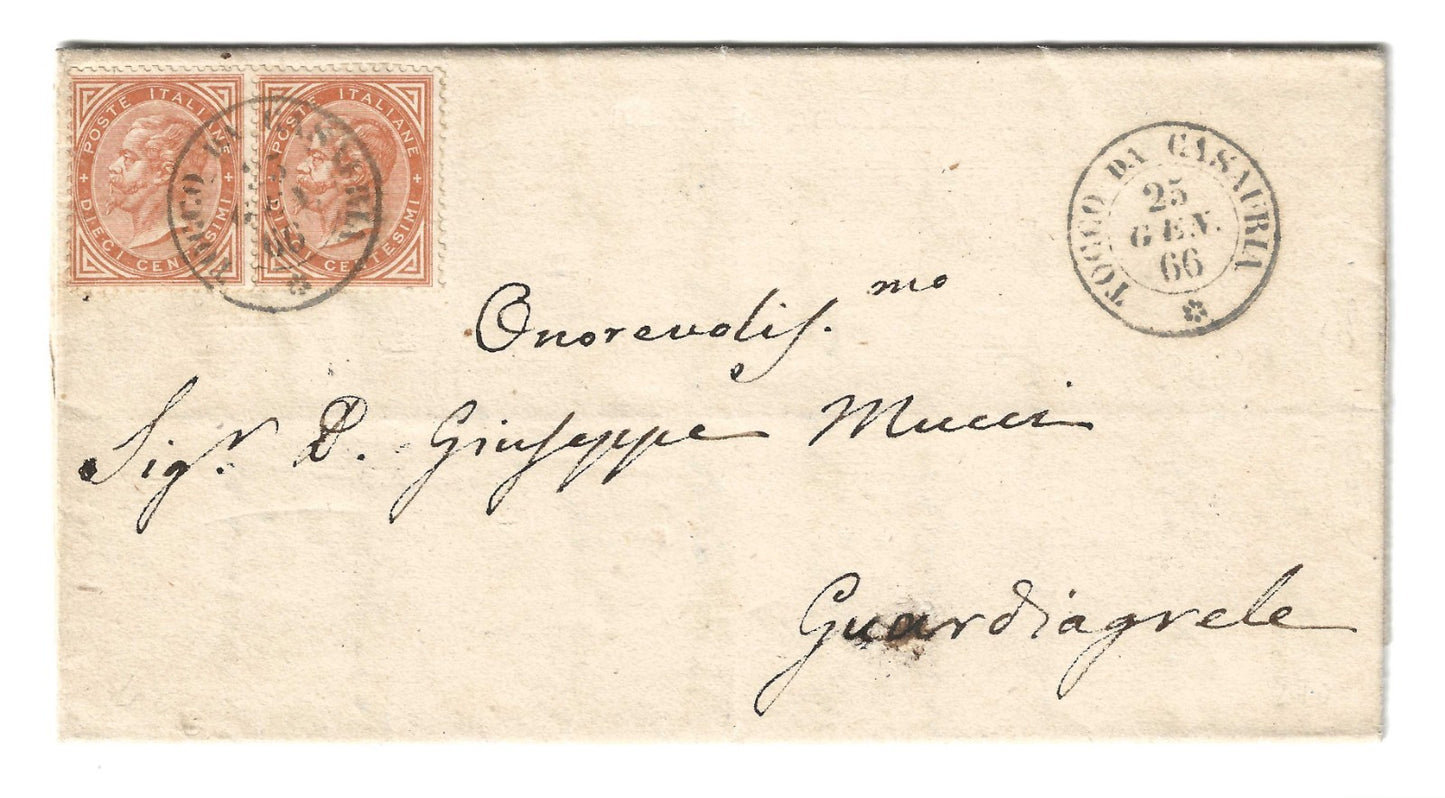 POSTE ITALIANE
DIECI CENTESIMI
POSTE ITALIANE
DIECI CENTESIMI
TOCCO DA CASAURIA
TOCCO DA CASAURIA
25
GEN.
66
Onorevolis.mo
Sigr. D. Giuseppe Mucci
Guardiagrele